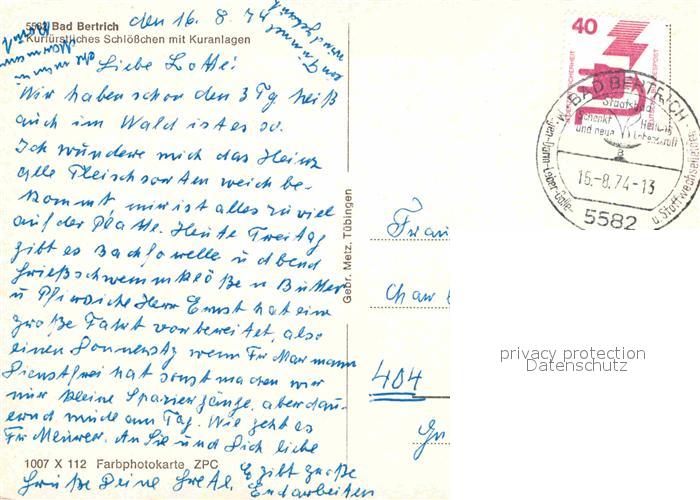 5582 Bad Bertrich den 16. 8. 74
Kurfürstliches Schlößchen mit Kuranlagen
Liebe Lotte!
Wir haben schon den 3 Tg heiß
auch im Wald ist es so.
Ich wundere mich das Heinz
alle Fleischsorten weich be-
kommt mir ist alles zu viel
auf der Platte. Heute Freitag
gibt es Bachforelle u abend
Grießschwemmklöße u Butter
u Pfirsiche Herr Ernst hat eine
große Fahrt vorbereitet, also
einen Sonnenstg wenn Fr Marmann
Dienstfrei hat sonst machen wir
nur kleine Spaziergänge, aber dau-
ernd müde am Tag. Wie geht es
Fr Meurer. An Sie und Dich liebe
Grüße Deine Grete. Es gibt große
Endarbeiten
1007 X 112 Farbphotokarte ZPC
Gebr. Metz, Tübingen
40
BAD BERTRICH
Staatsbad
schenkt Heilung
und neue Lebenskraft
a
16.-8.74-13
5582
Frau
404
privacy protection
Datenschutz